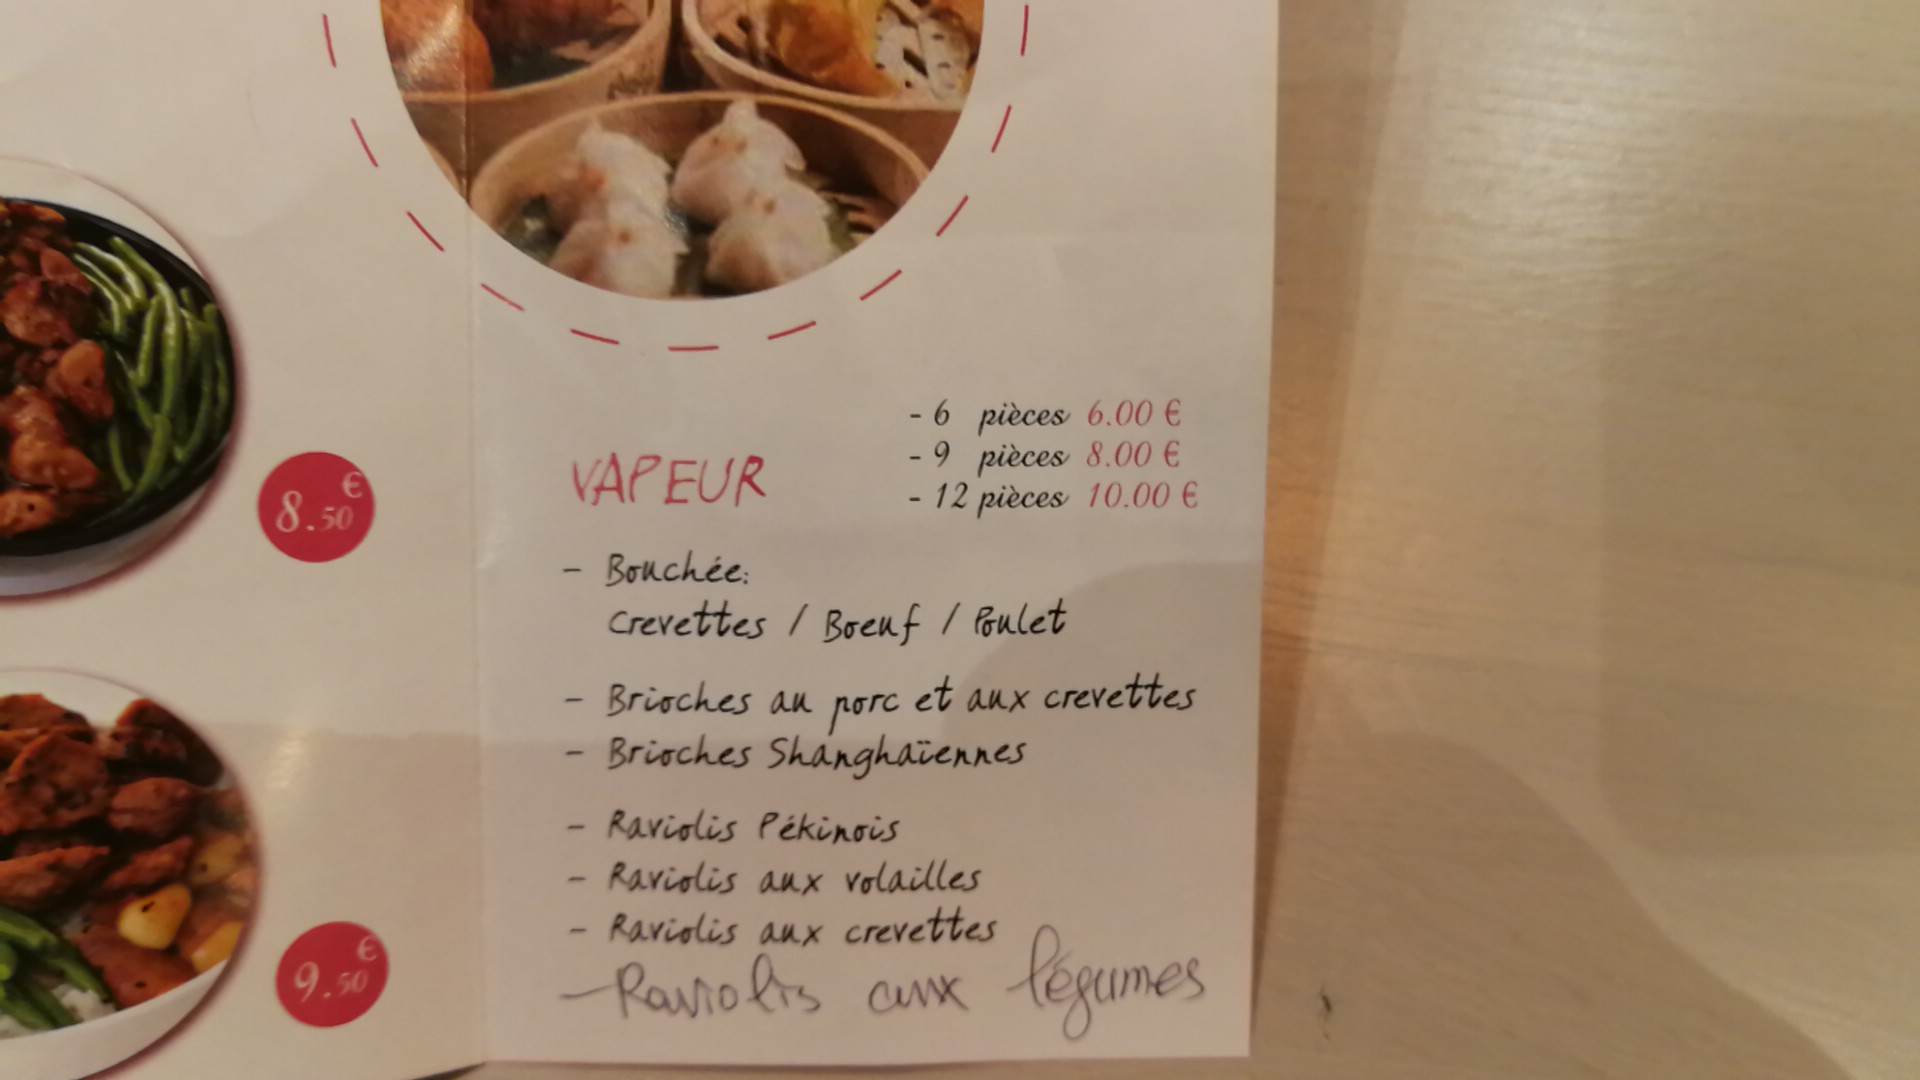 - 6 pièces 6.00 €
- 9 pièces 8.00 €
- 12 pièces 10.00 €
VAPEUR
- Bouchée:
Crevettes / Boeuf / Poulet
- Brioches au porc et aux crevettes
- Brioches Shanghaïennes
- Raviolis Pékinois
- Raviolis aux volailles
- Raviolis aux crevettes
- Raviolis aux légumes
8.50 €
9.50 €